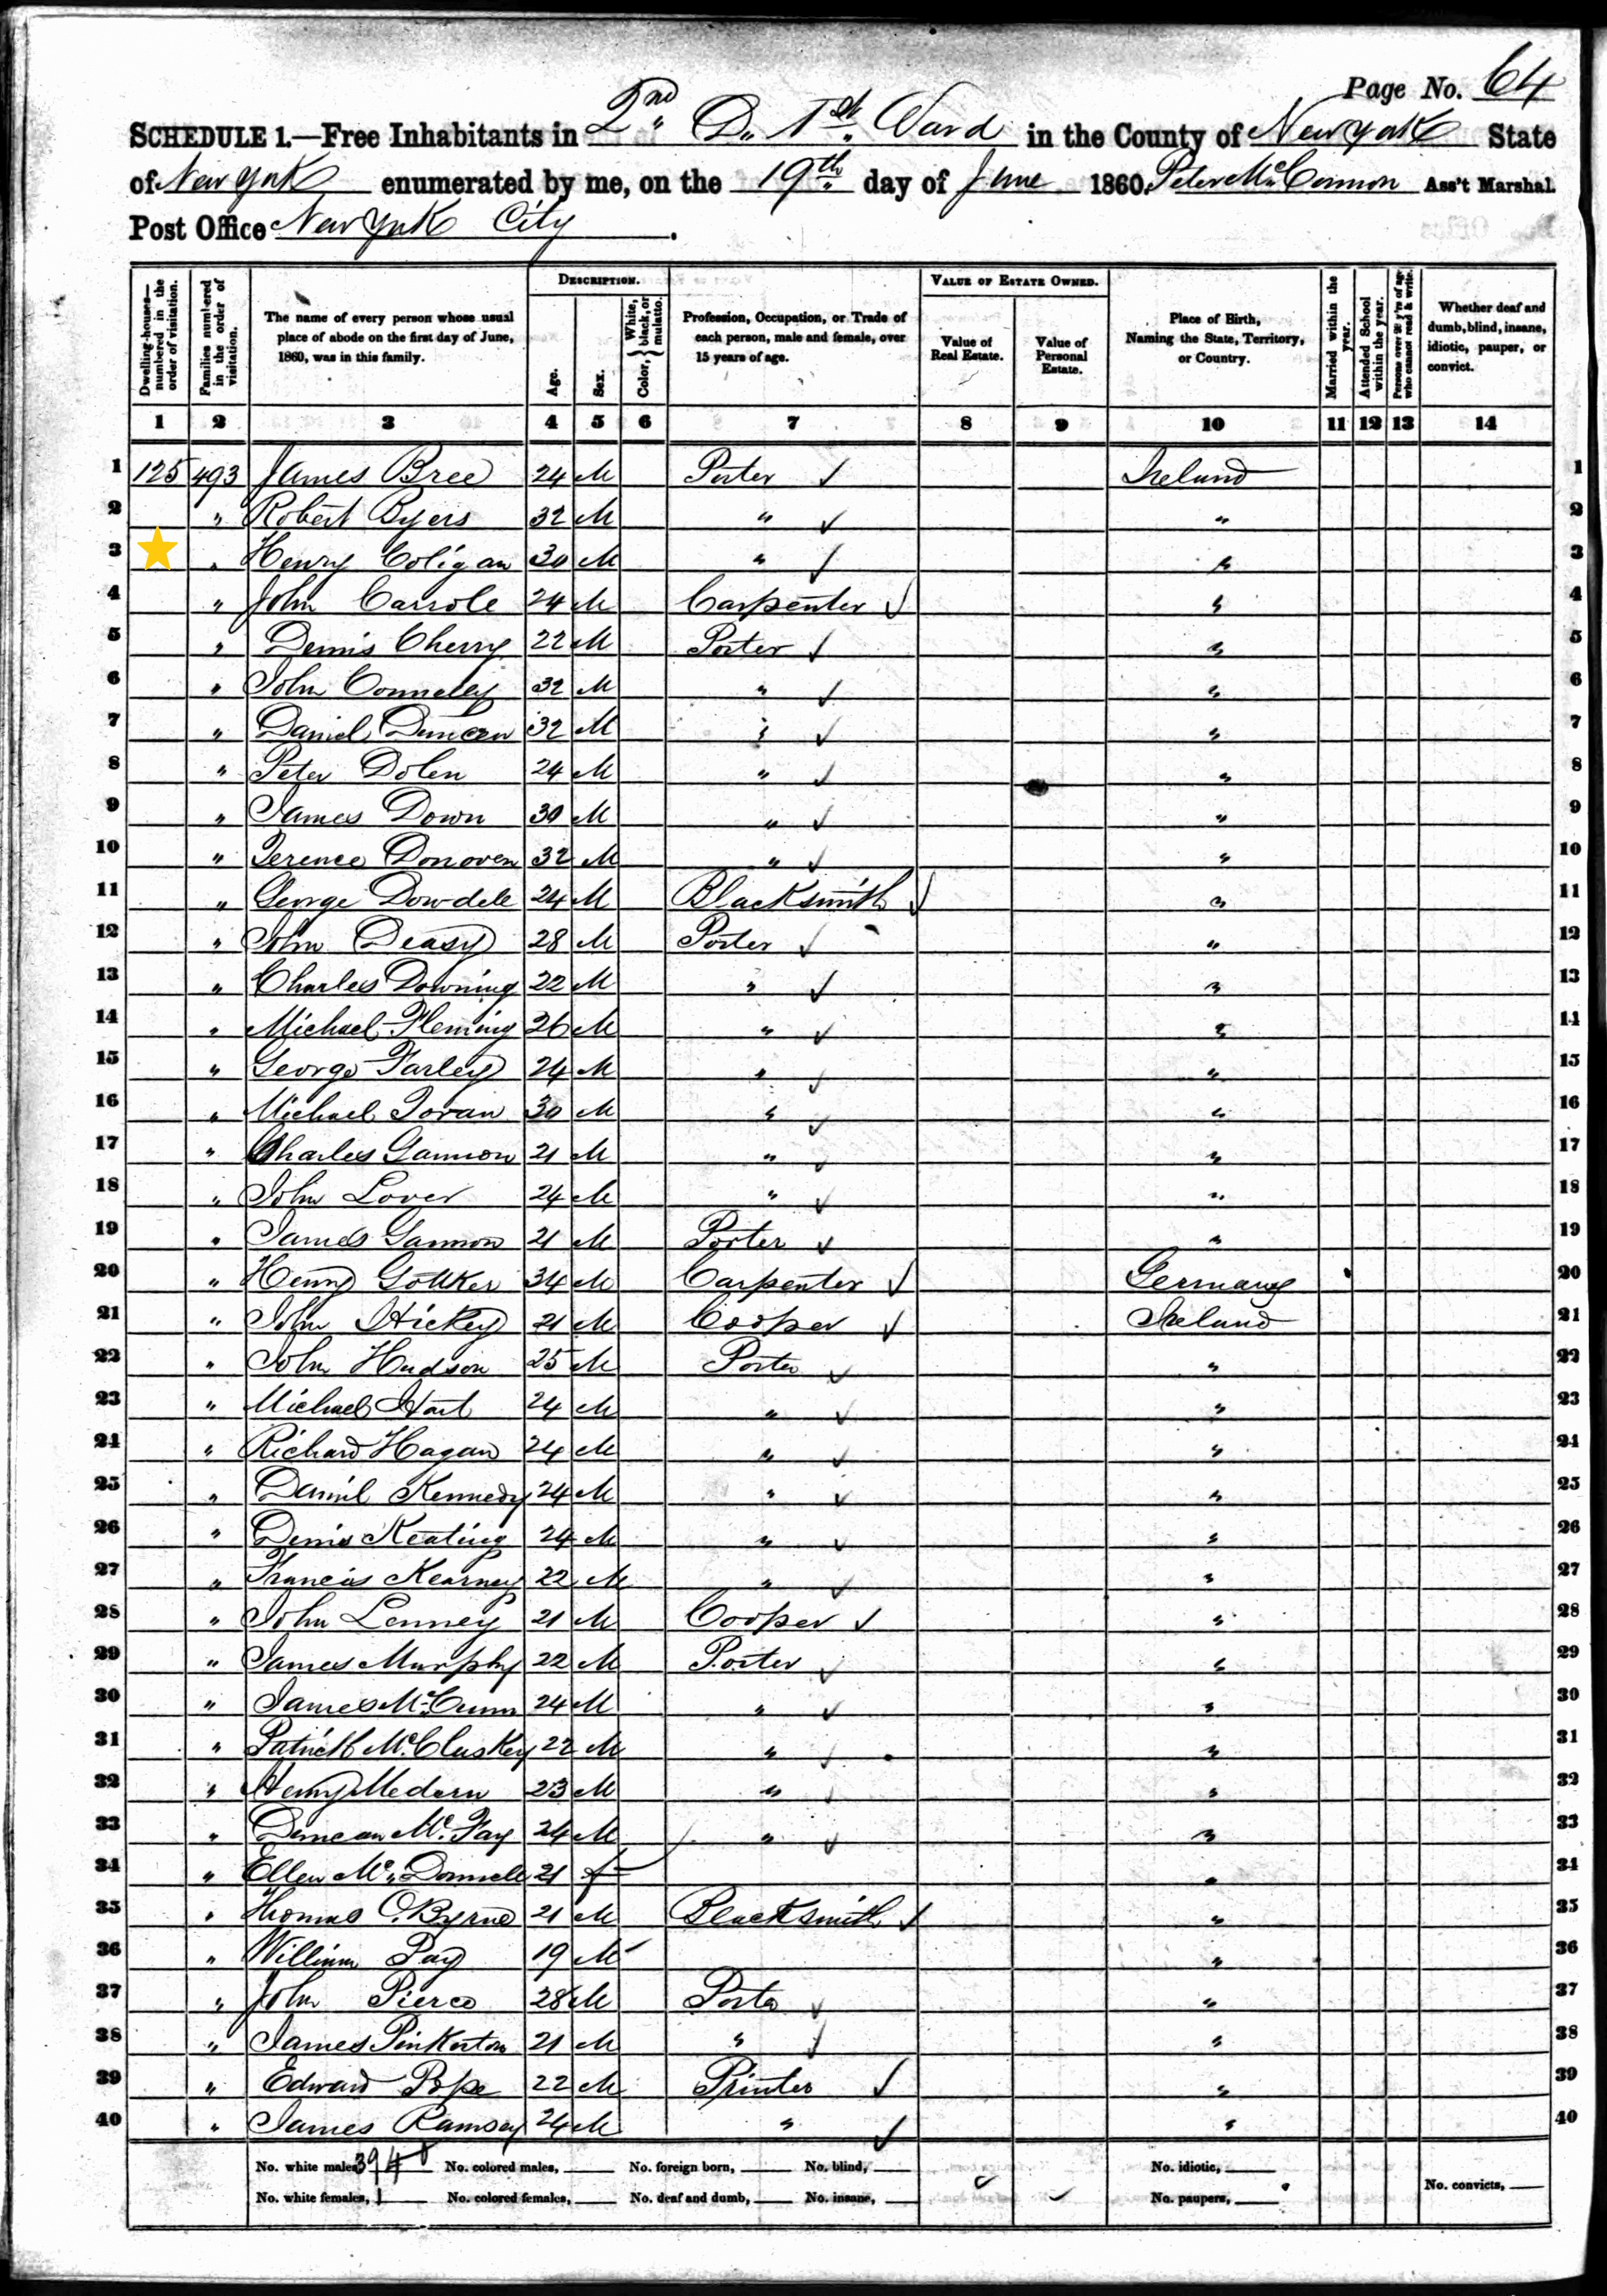 Page No. 64
SCHEDULE 1.—Free Inhabitants in 2nd D. 1st Ward in the County of New York State
of New York enumerated by me, on the 19th day of June 1860. Peter McConnon Ass't Marshal.
Post Office New York City.
Dwelling-houses—numbered in the order of visitation. Families numbered in the order of visitation. The name of every person whose usual place of abode on the first day of June, 1860, was in this family. DESCRIPTION. Age. Sex. Color, { White, black, or mulatto. Profession, Occupation, or Trade of each person, male and female, over 15 years of age. VALUE OF ESTATE OWNED. Value of Real Estate. Value of Personal Estate. Place of Birth, Naming the State, Territory, or Country. Married within the year. Attended School within the year. Persons over 20 y'rs of age who cannot read & write. Whether deaf and dumb, blind, insane, idiotic, pauper, or convict.
1 2 3 4 5 6 7 8 9 10 11 12 13 14
1 125 493 James Bree 24 M Porter ✓ Ireland 1
2 " Robert Byers 32 M " ✓ " 2
3 " Henry Coligan 30 M " ✓ " 3
4 " John Carrole 24 M Carpenter ✓ " 4
5 " Denis Cherry 22 M Porter ✓ " 5
6 " John Connelly 32 M " ✓ " 6
7 " Daniel Duncan 32 M " ✓ " 7
8 " Peter Dolen 24 M " ✓ " 8
9 " James Down 30 M " ✓ " 9
10 " Terence Donoven 32 M " ✓ " 10
11 " George Dowdele 24 M Blacksmith ✓ " 11
12 " John Deasy 28 M Porter ✓ " 12
13 " Charles Downing 22 M " ✓ " 13
14 " Michael Fleming 26 M " ✓ " 14
15 " George Farley 24 M " ✓ " 15
16 " Michael 30 M " ✓ " 16
17 " Charles Gannon 21 M " ✓ " 17
18 " John Lover 24 M " ✓ " 18
19 " James Gannon 21 M Porter ✓ " 19
20 " Henry 34 M Carpenter ✓ Germany 20
21 " John Hickey 21 M Cooper ✓ Ireland 21
22 " John Hudson 25 M Porter ✓ " 22
23 " Michael Hart 24 M " ✓ " 23
24 " Richard Hagan 24 M " ✓ " 24
25 " Daniel Kennedy 24 M " ✓ " 25
26 " Denis Keating 24 M " ✓ " 26
27 " Francis Kearney 22 M " ✓ " 27
28 " John Lenney 21 M Cooper ✓ " 28
29 " James Murphy 22 M Porter ✓ " 29
30 " James McCunn 24 M " ✓ " 30
31 " Patrick McCluskey 22 M " ✓ " 31
32 " Henry Medern 23 M " ✓ " 32
33 " Duncan McFay 24 M " ✓ " 33
34 " Ellen McDonnele 21 f " 34
35 " Thomas O.Byrne 21 M Blacksmith ✓ " 35
36 " William Pay 19 M " 36
37 " John Pierce 28 M Porter ✓ " 37
38 " James Pinkerton 21 M " ✓ " 38
39 " Edward Pope 22 M Printer ✓ " 39
40 " James Ramsey 24 M " ✓ " 40
No. white males, 39 No. colored males, No. foreign born, No. blind, No. idiotic,
No. white females, 1 No. colored females, No. deaf and dumb, No. insane, No. paupers, No. convicts,